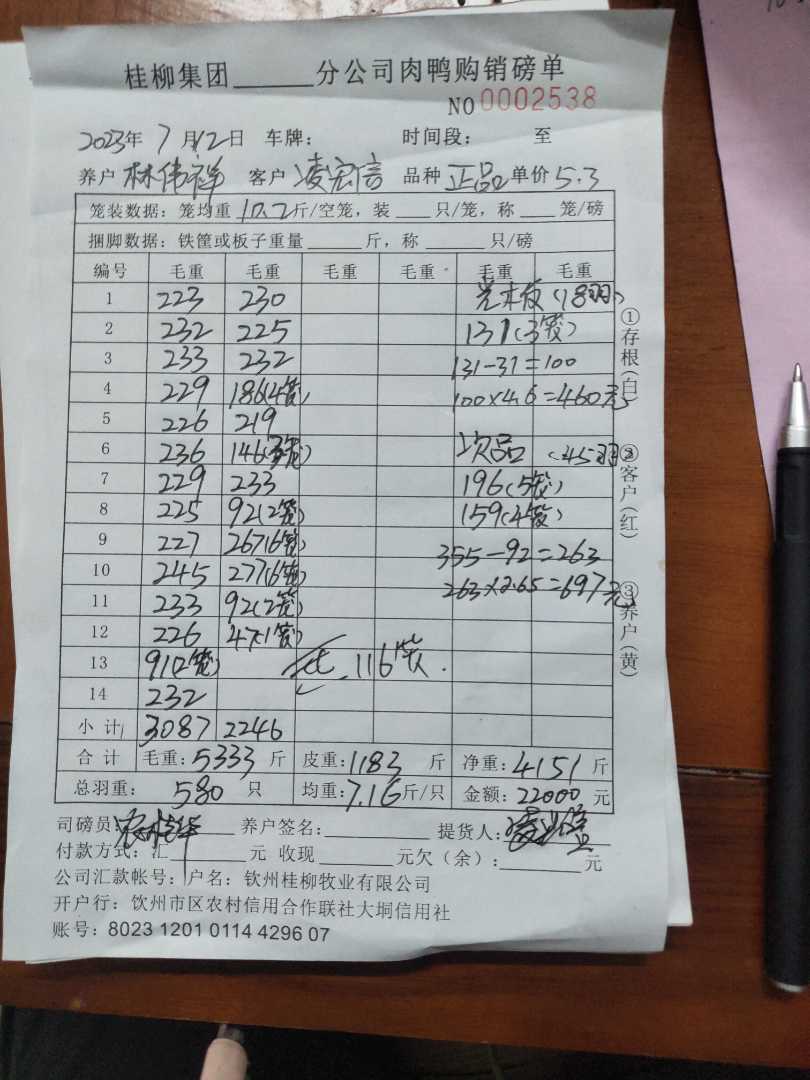 桂柳集团______分公司肉鸭购销磅单
NO 0002538
2023年 7月12日 车牌: 时间段: 至
养户 林伟祥 客户 凌宏信 品种 正品 单价 5.3
笼装数据: 笼均重 10.2 斤/空笼, 装___只/笼, 称___笼/磅
捆脚数据: 铁筐或板子重量______斤, 称______只/磅
编号 毛重 毛重 毛重 毛重 毛重 毛重
1 223 230
2 232 225 131(3笼)
3 233 232 131-31=100
4 229 186(4笼) 100×4.6=460元
5 226 219
6 236 146(3笼) 次品 (45羽)
7 229 233 196(5笼)
8 225 92(2笼) 159(4笼)
9 227 267(6笼) 355-92=263
10 245 277(6笼) 263×2.65=697元
11 233 92(2笼)
12 226 47(1笼)
13 91(2笼) 116笼.
14 232
小计 3087 2246
合计 毛重: 5333 斤 皮重: 1183 斤 净重: 4151 斤
总羽重: 580 只 均重: 7.16 斤/只 金额: 22000 元
司磅员: 养户签名: 提货人:
付款方式: 汇______元 收现______元欠(余):______元
公司汇款帐号: 户名: 钦州桂柳牧业有限公司
开户行: 钦州市区农村信用合作联社大垌信用社
账号: 8023 1201 0114 4296 07
①存根(白)
②客户(红)
③养户(黄)